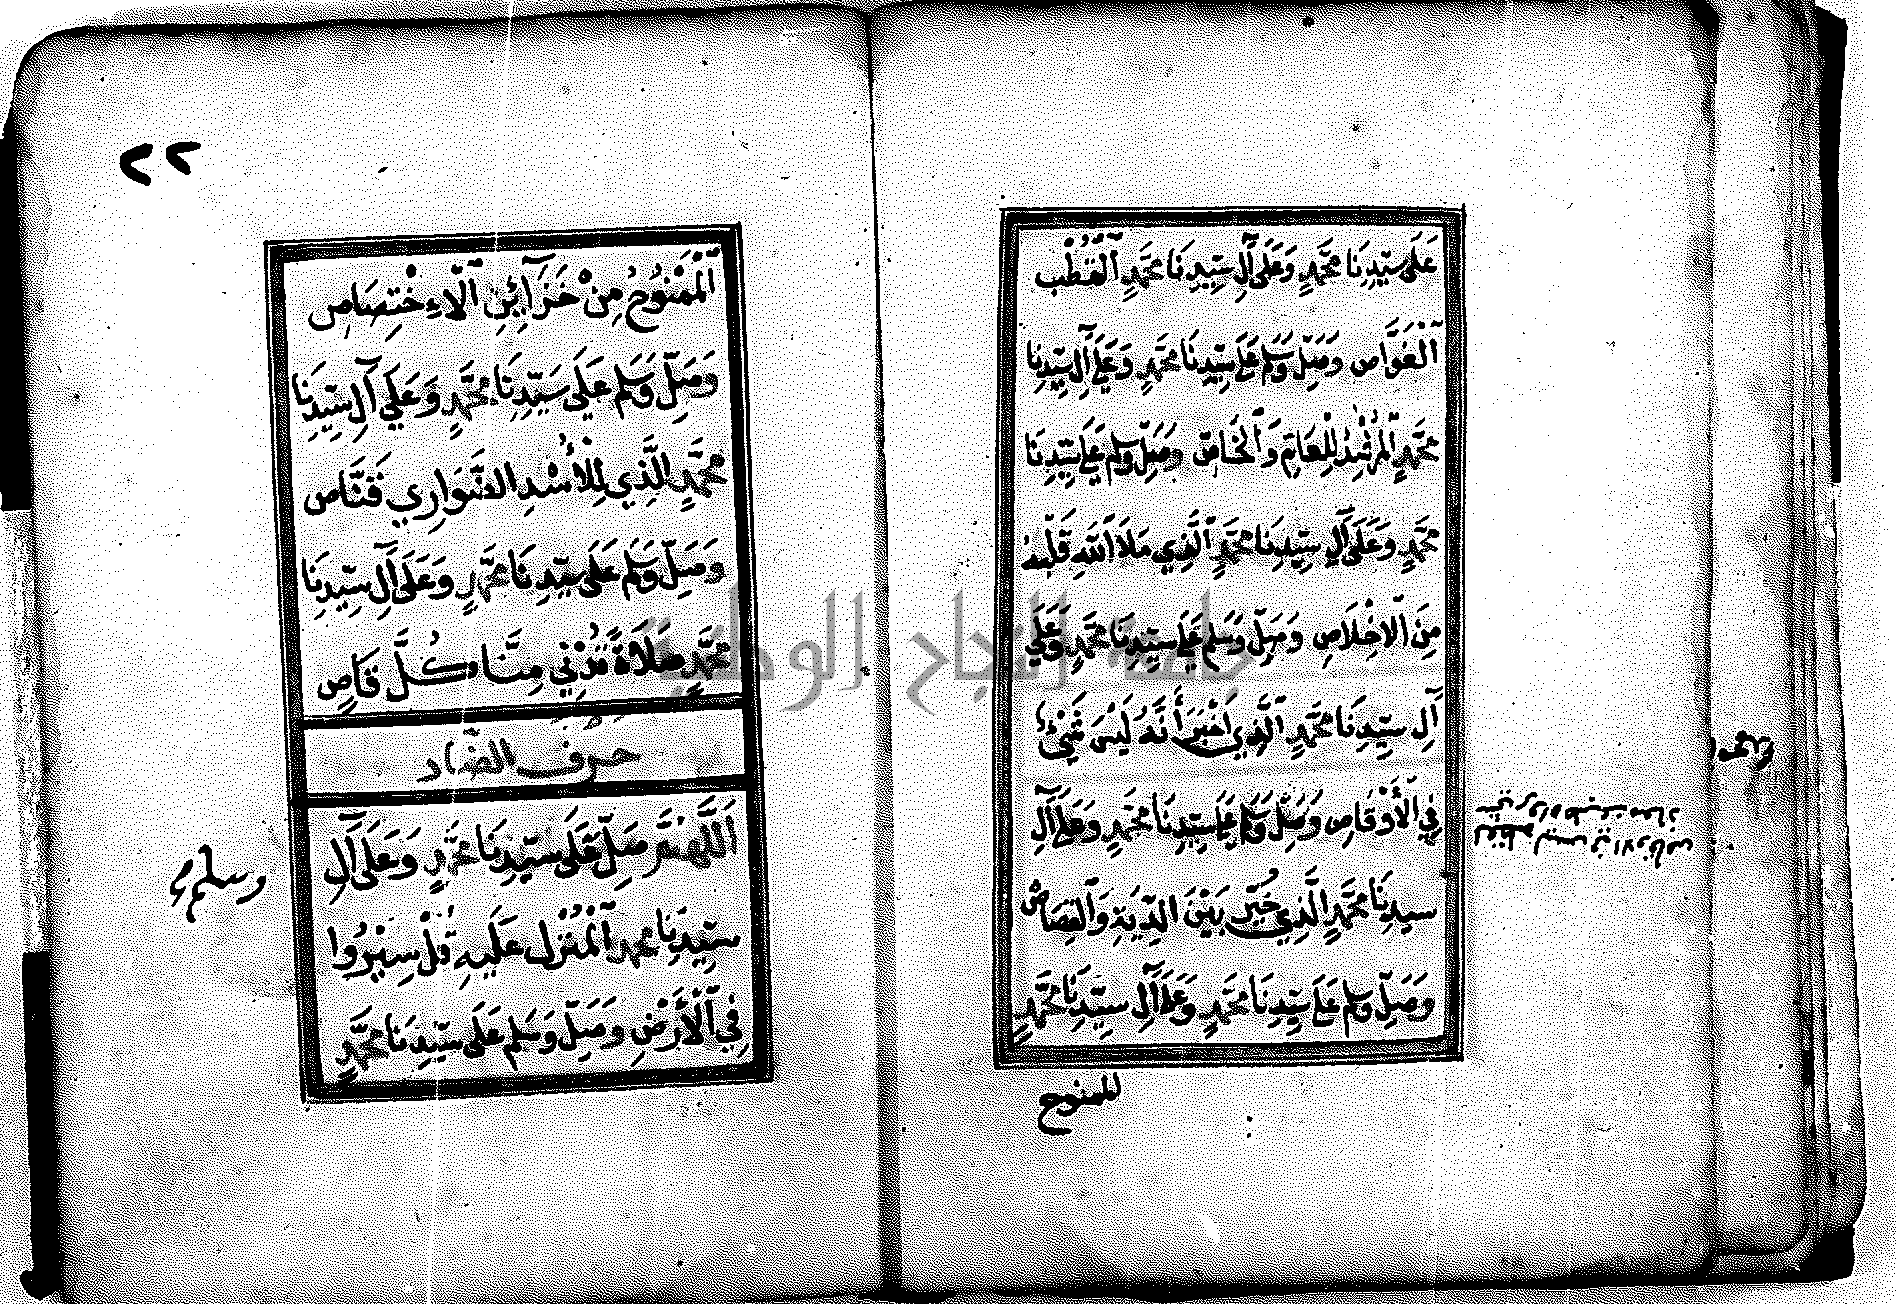 عَلَى سَيِّدِنَا مُحَمَّدٍ وَعَلَى آلِ سَيِّدِنَا مُحَمَّدٍ اَلْقُطْبِ
اَلْغَوَّاصِ وَصَلِّ وَسَلِّمْ عَلَى سَيِّدِنَا مُحَمَّدٍ وَعَلَى آلِ سَيِّدِنَا
مُحَمَّدٍ اَلْمُرْشِدُ لِلْعَامِّ وَالْخَاصِّ وَصَلِّ وَسَلِّمْ عَلَى سَيِّدِنَا
مُحَمَّدٍ وَعَلَى آلِ سَيِّدِنَا مُحَمَّدٍ اَلَّذِي مَلَاَ اللهُ قَلْبَهُ
مِنَ الْاِخْلَاصِ وَصَلِّ وَسَلِّمْ عَلَى سَيِّدِنَا مُحَمَّدٍ وَعَلَى
آلِ سَيِّدِنَا مُحَمَّدٍ اَلَّذِي اَخْبَرَ أَنَّهُ لَيْسَ شَيْئٌ
فِي الْأَوْقَاصِ وَصَلِّ وَسَلِّمْ عَلَى سَيِّدِنَا مُحَمَّدٍ وَعَلَى آلِ
سَيِّدِنَا مُحَمَّدٍ الَّذِي خُيِّرَ بَيْنَ الدِّيَةِ وَالْقِصَاصْ
وَصَلِّ وَسَلِّمْ عَلَى سَيِّدِنَا مُحَمَّدٍ وَعَلَى آلِ سَيِّدِنَا مُحَمَّدٍ
الممنوح
ليس في الاوقاص
٢٢
اَلْمَمْنُوحُ مِنْ خَزَآئِنِ اَلْاِخْتِصَاصِ
وَصَلِّ وَسَلِّمْ عَلَى سَيِّدِنَا مُحَمَّدٍ وَعَلَى آلِ سَيِّدِنَا
مُحَمَّدٍ الَّذِي لِلْأُسْدِ الضَّوَارِي قَنَّاصْ
وَصَلِّ وَسَلِّمْ عَلَى سَيِّدِنَا مُحَمَّدٍ وَعَلَى آلِ سَيِّدِنَا
مُحَمَّدٍ صَلَاةً تُدْنِي مِنَّا كُلَّ قَاصٍ
حرف الضاد
اَللّٰهُمَّ صَلِّ عَلَى سَيِّدِنَا مُحَمَّدٍ وَعَلَى آلِ
سَيِّدِنَا مُحَمَّدٍ اَلْمُنْزَلِ عَلَيْهِ قُلْ سِيْرُوا
فِي الْأَرْضِ وَصَلِّ وَسَلِّمْ عَلَى سَيِّدِنَا مُحَمَّدٍ
وسلم
جامعة النجاح الوطنية